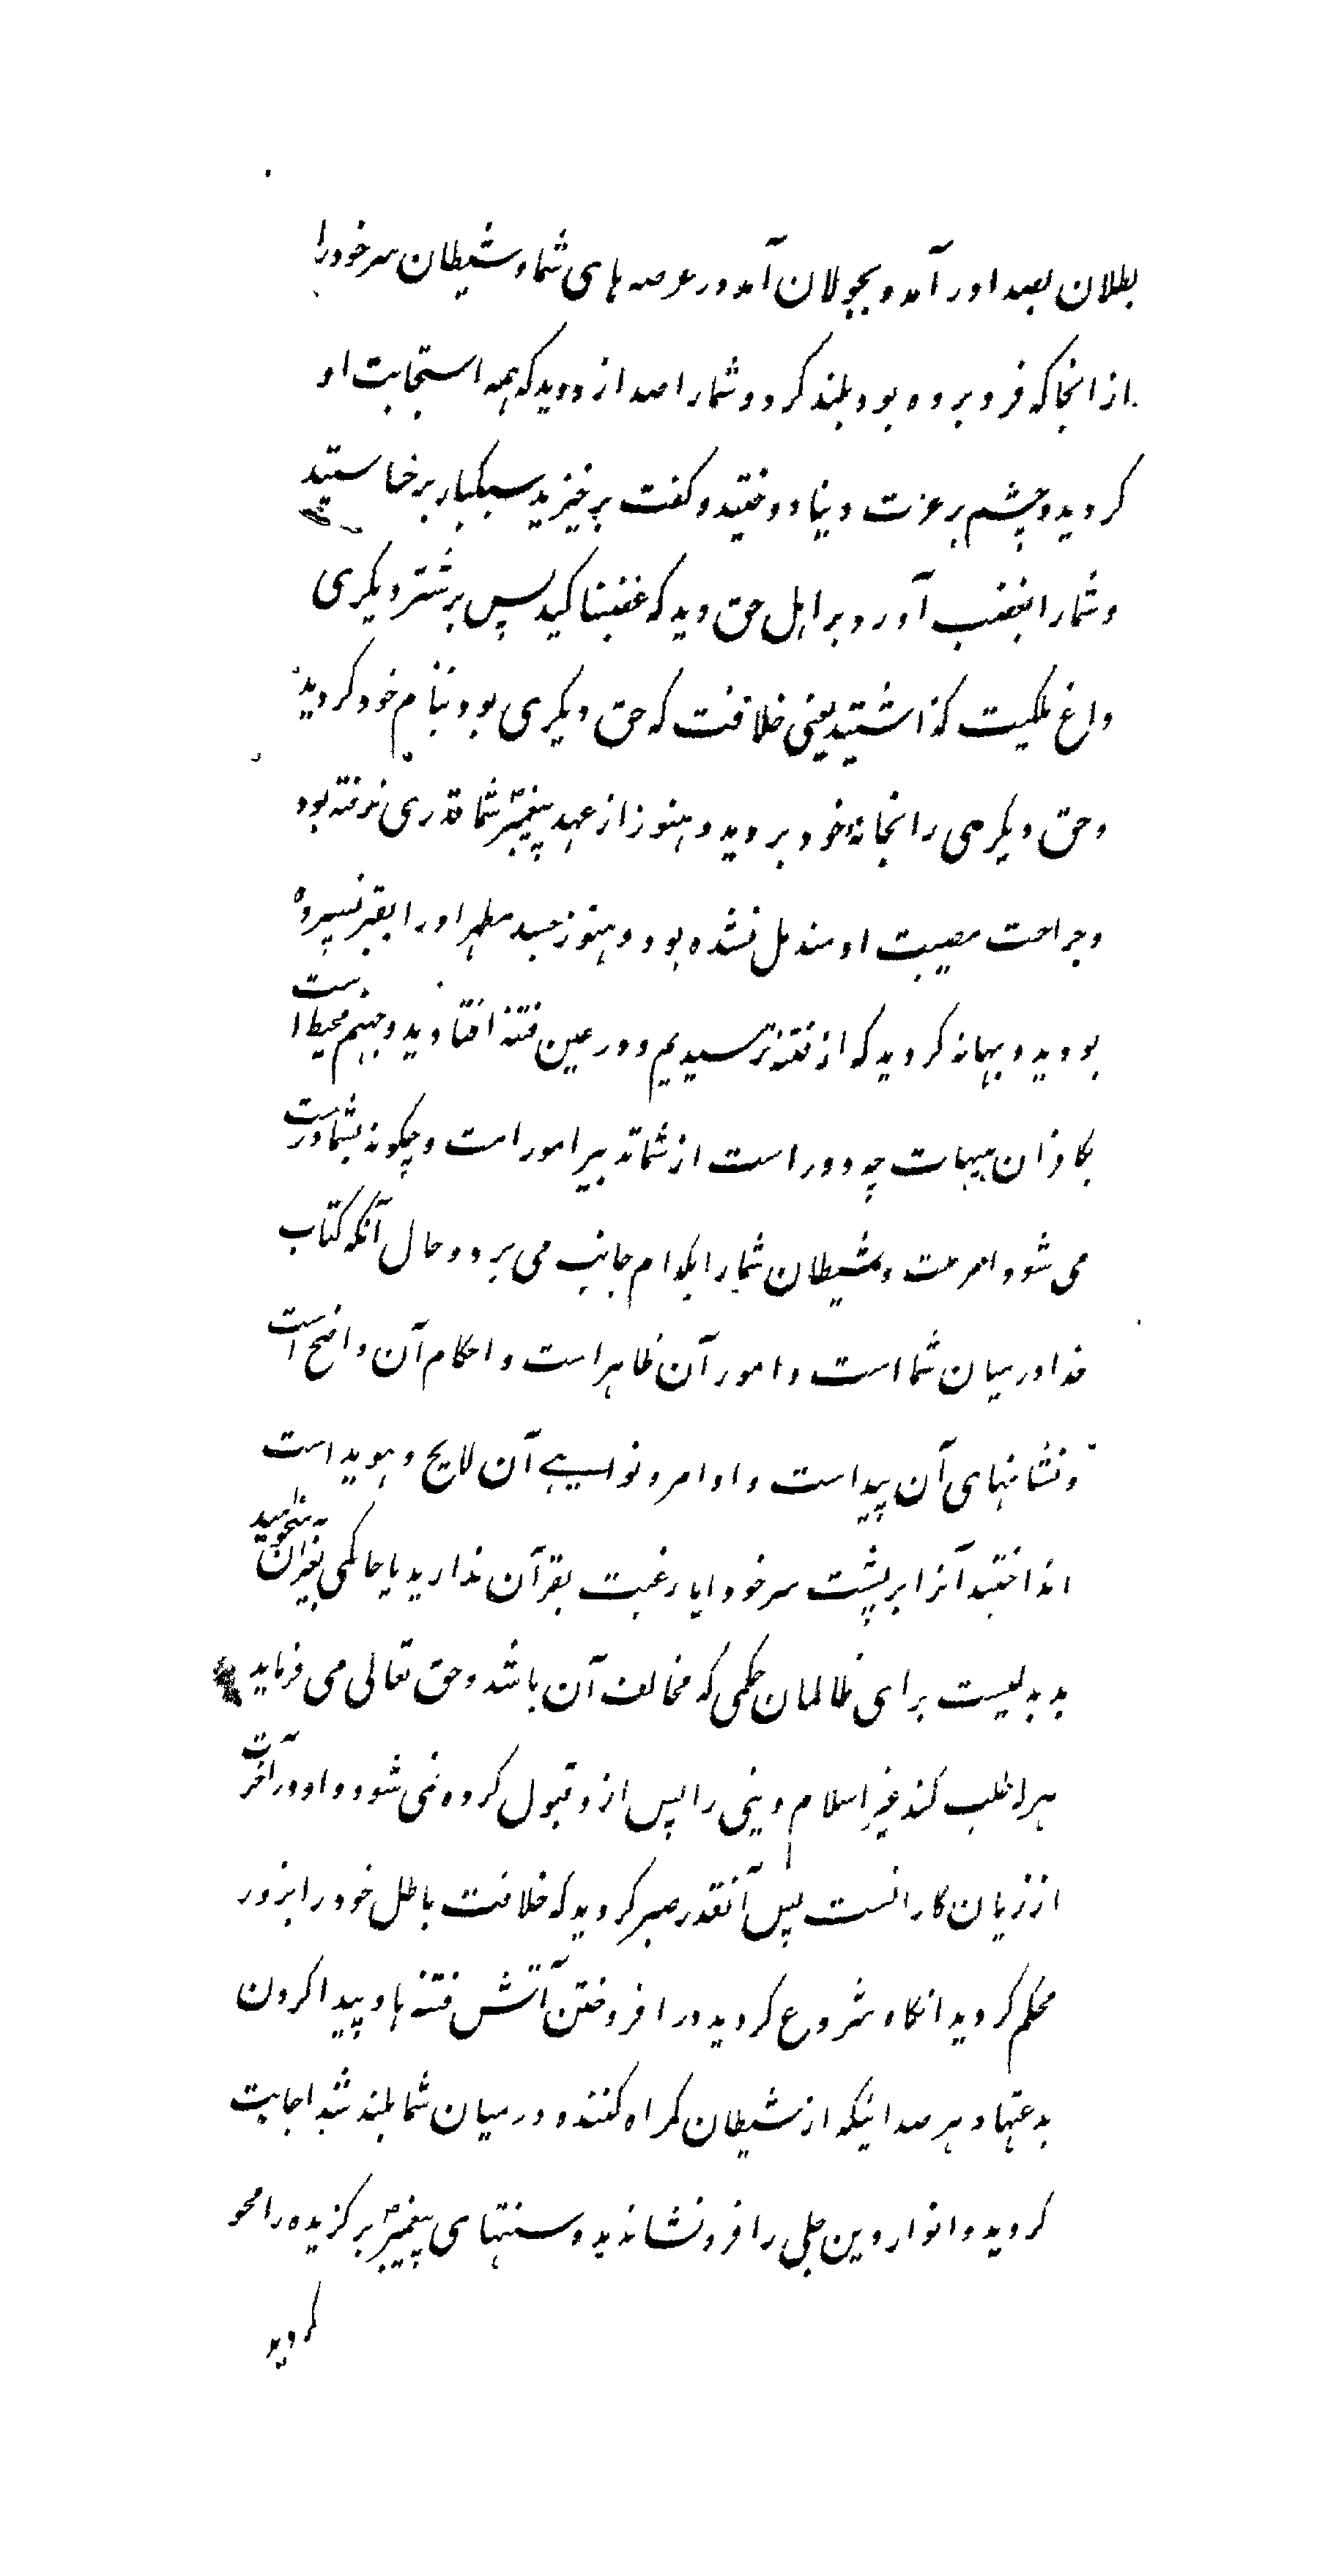 بطلان بصدا در آمد و بجولان آمد در عرصه های شما و شیطان سر خود را
از انجا که فرو برده بود بلند کرد و شما را صدا زد دید که همه استجابت او
کردید و چشم بر عزت دنیا دوختید و گفت برخیزید سبکبار برخاستید
و شما را بغضب آورد بر اهل حق دید که غضبناکید پس بر شتر دیگری
داغ ملکیت گذاشتید یعنی خلافت که حق دیگری بود بنام خود کردید
و حق دیگری را بخانهٔ خود بردید و هنوز از عهد پیغمبر شما قدری نرفته بود
و جراحت مصیبت او مندمل نشده بود و هنوز جسد مطهر او را بقبر نسپرده
بودید و بهانه کردید که از فتنه ترسیدیم و در عین فتنه افتادید و جهنم محیط است
بکافران هیهات چه دور است از شما تدبیر امور امت و چگونه بشما درست
می شود امر امت و شیطان شما را بکدام جانب می برد و حال آنکه کتاب
خدا در میان شما است و امور آن ظاهر است و احکام آن واضح است
و نشانهای آن پیداست و اوامر و نواهی آن لایح و هویداست
انداختید آنرا بر پشت سر خود ایا رغبت بقرآن ندارید یا حاکمی بغیر آن میخواهید
بد بدلیست برای ظالمان حکمی که مخالف آن باشد و حق تعالی می فرماید
هر که طلب کند غیر اسلام دینی را پس از و قبول کرده نمی شود و او در آخرت
از زیان کارانست پس آنقدر صبر کردید که خلافت باطل خود را بزور
محکم کردید انگاه شروع کردید در افروختن آتش فتنه ها و پیدا کردن
بدعتها و هر صدائیکه از شیطان گمراه کننده در میان شما بلند شد اجابت
کردید و انوار دین جلی را فرو نشاندید و سنتهای پیغمبر برگزیده را محو
کردید